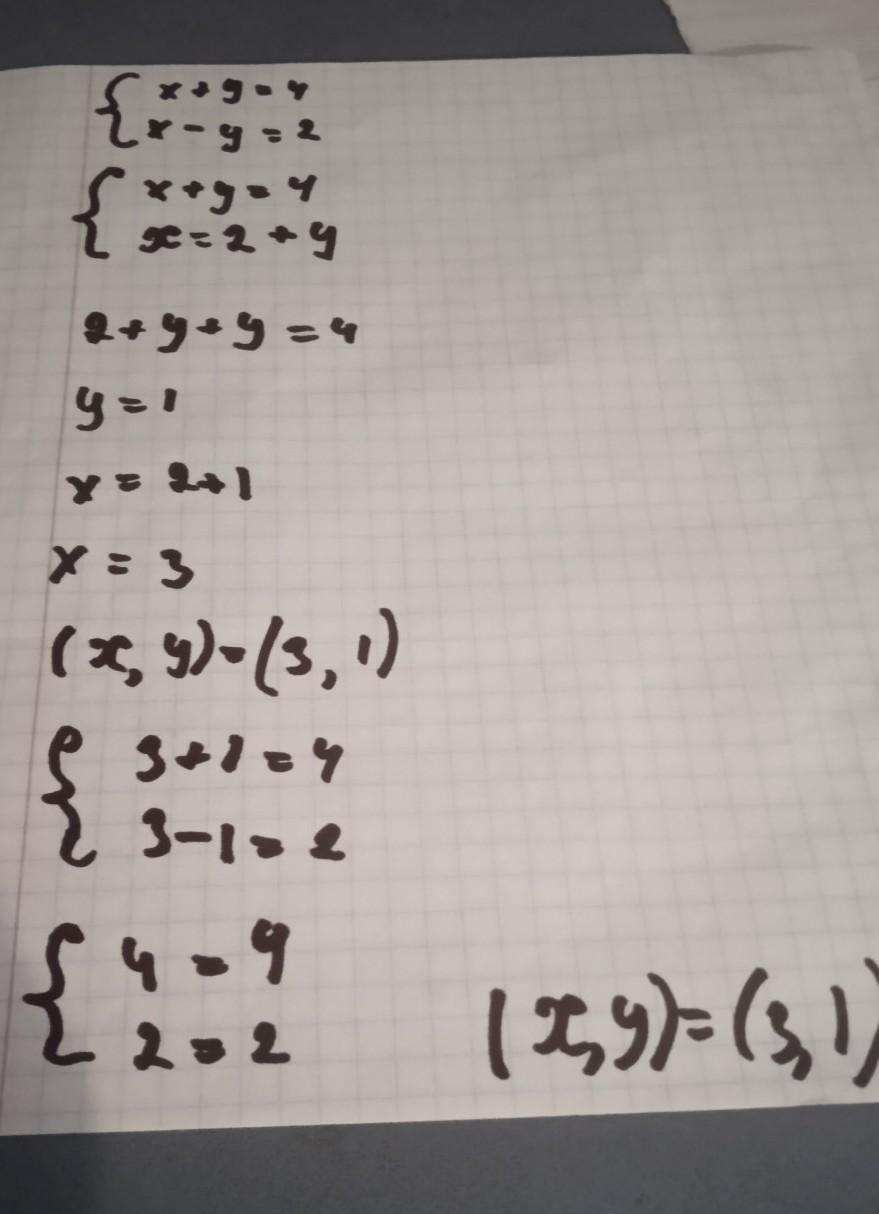 { x + y = 4
x - y = 2
{ x + y = 4
x = 2 + y
2 + y + y = 4
y = 1
x = 2 + 1
x = 3
(x, y) = (3, 1)
{ 3 + 1 = 4
3 - 1 = 2
{ 4 = 4
2 = 2
(x, y) = (3, 1)